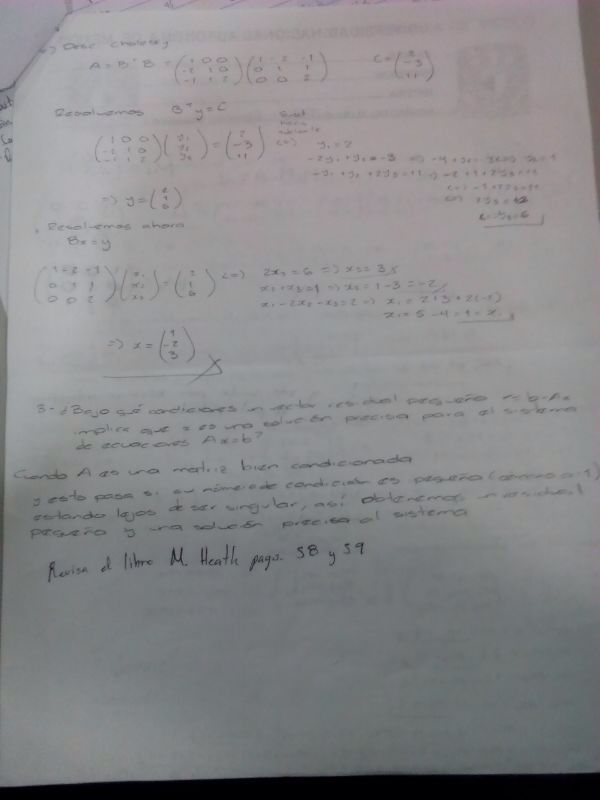 Desc Cholesky
A = BᵀB = (1 0 0; -2 1 0; -1 1 2) (1 -2 -1; 0 1 1; 0 0 2) C = (2; -3; 11)
Resolvemos Bᵀy = C
(1 0 0; -2 1 0; -1 1 2) (y₁; y₂; y₃) = (2; -3; 11)
y₁ = 2
-2y₁ + y₂ = -3
-y₁ + y₂ + 2y₃ = 11 => -2 + 1 + 2y₃ = 11
=> y = (2; 1; 6)
Resolvemos ahora
Bx = y
(1 -2 -1; 0 1 1; 0 0 2) (x₁; x₂; x₃) = (2; 1; 6) <=> 2x₃ = 6 => x₃ = 3
x₂ + x₃ = 1 => x₂ = 1 - 3 = -2
x₁ - 2x₂ - x₃ = 2 => x₁ = 2 + 3 + 2(-2)
x₁ = 5 - 4 = 1 = x₁
=> x = (1; -2; 3)
3.- ¿Bajo qué condiciones un vector residual pequeño r = b - Ax
implica que x es una solución precisa para el sistema
de ecuaciones Ax = b?
Cuando A es una matriz bien condicionada
y esto pasa si su número de condición es pequeña (cercano a 1)
estando lejos de ser singular, así obtenemos un residual
pequeño y una solución precisa al sistema
Revisa el libro M. Heath pags. 58 y 59